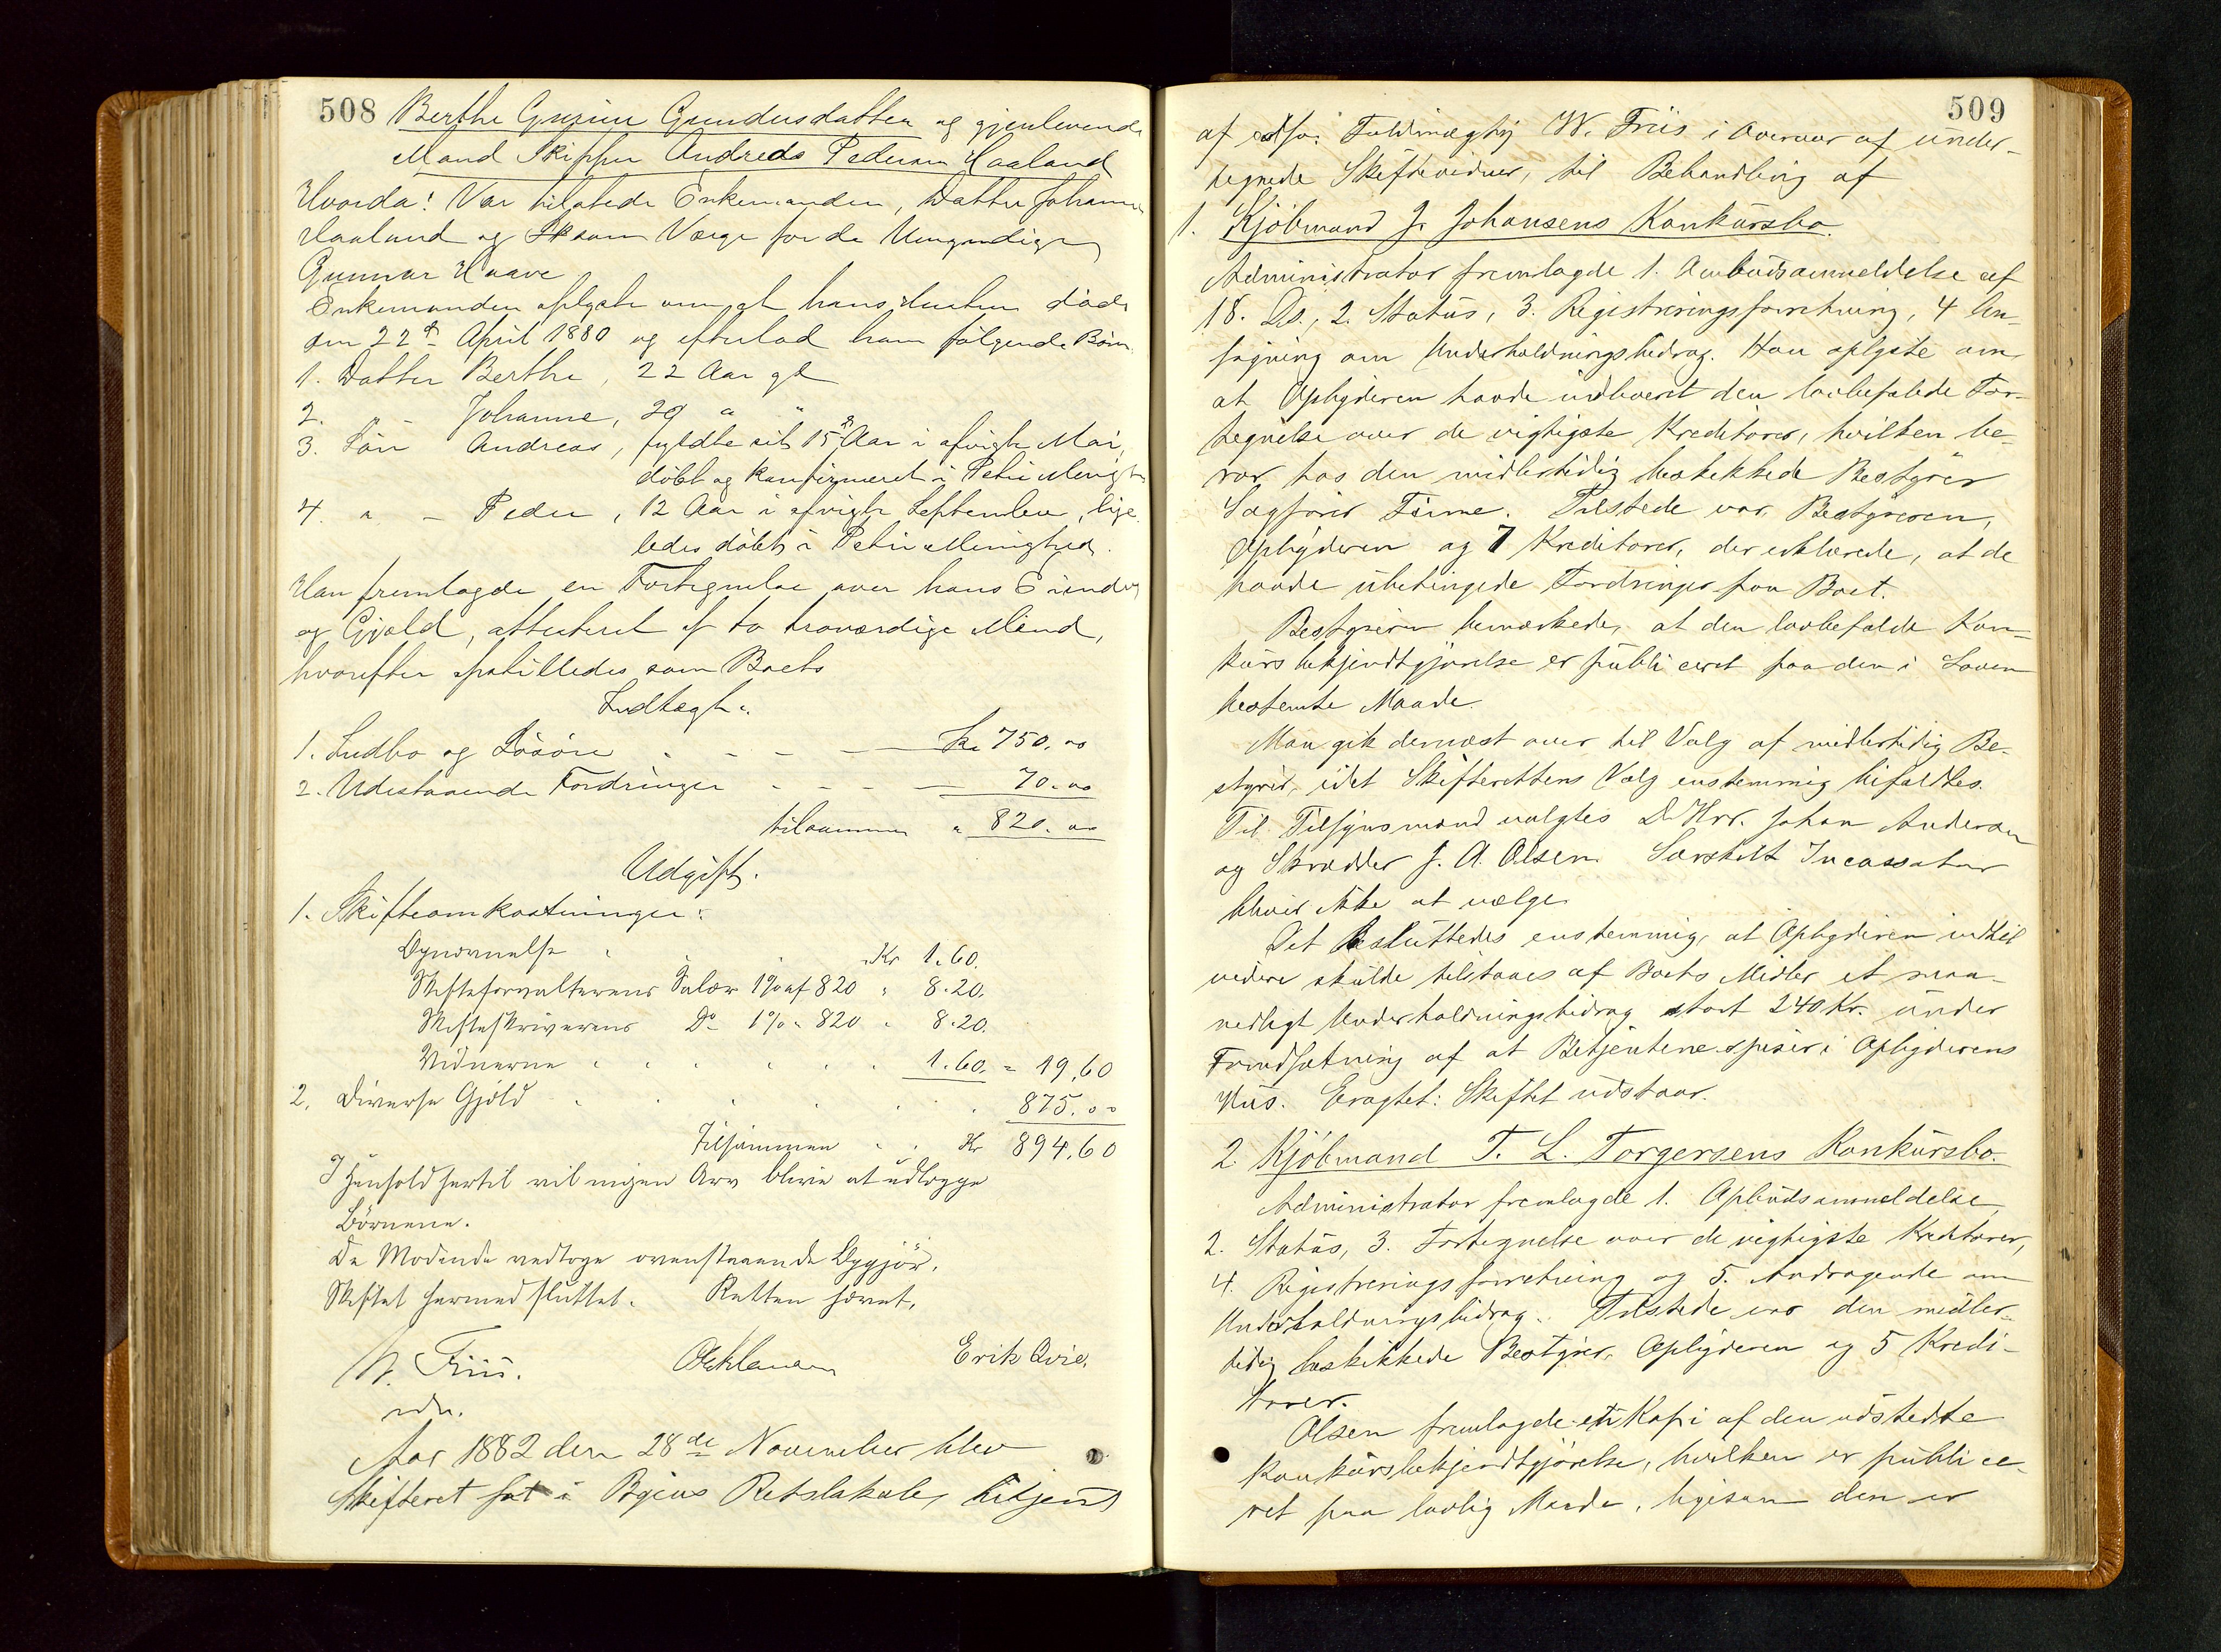 508 Berthe Gurine Gundersdatter og gjenlevende
Mand Skipper Andreas Pedersen Haaland
Hvorda: Var tilstede Enkemanden, Datter Johanne
Haaland og som Værge for de Umyndige
Gunnar Haave
Enkemanden oplyste om, at hans Hustru døde
den 22de April 1880 og efterlod ham følgende Børn
1. Datter Berthe, 22 Aar gl
2. " - Johanne, 20 " "
3. Søn Andreas, fyldte sit 15de Aar i afvigte Mai,
døbt og konfirmeret i Petri Menigh
4. " - Peder, 12 Aar i afvigte September, lige
ledes døbt i Petri Menighed.
Han fremlagde en Fortegnelse over hans Eiendele
og Gjæld, attesteret af to troværdige Mænd,
hvorefter opstilledes som Boets
Indtægt.
1. Indbo og Løsøre - - - Kr 750.00
2. Udestaaende Fordringer - - - - 70.00
tilsammen " 820.00
Udgift.
1. Skifteomkostninger:
Opnævnelse . . . Kr 1.60.
Skifteforvalterens Salær 1% af 820 " 8.20.
Skifteskriverens Do 1% " 820 " 8.20.
Vidnerne . . . . . . 1.60. = 19,60
2. Diverse Gjæld . . . . . . 875.00
Tilsammen . . Kr 894,60
I Henhold hertil vil ingen Arv blive at udlægge
Børnene.
De Mødende vedtoge ovenstaaende Opgjør.
Skiftet hermed sluttet. Retten hævet.
W. Friis. Erik Qvie.
edsv.
Aar 1882 den 28de November blev
Skifteret sat i Byens Retslokale, betjent
509
af edsv. Fuldmægtig W. Friis i Overvær af under-
tegnede Skiftevidner, til Behandling af
1. Kjøbmand J. Johansens Konkursbo.
Administrator fremlagde 1. Opbudsanmeldelse af
18. Ds., 2. Status, 3. Registreringsforretning, 4 An-
søgning om Underholdningsbidrag. Han oplyste om
at Opbyderen havde indleveret den lovbefalede For-
tegnelse over de vigtigste Kreditorer, hvilken be-
ror hos den midlertidig beskikkede Bestyrer
Sagfører Finne. Tilstede var Bestyreren,
Opbyderen og 7 Kreditorer, der erklærede, at de
havde ubetingede Fordringer paa Boet.
Bestyreren bemærkede, at den lovbefalde Kon-
kursbekjendtgjørelse er publiceret paa den i Loven
bestemte Maade.
Man gik dernæst over til Valg af midlertidig Be-
styrer, idet Skifterettens Valg enstemmig bifaldtes.
Til Tilsynsmænd valgtes DHrr. Johan Andersen
og Skrædder J. A. Olsen. Særskilt Incassator
bliver ikke at vælge.
Det besluttedes enstemmig, at Opbyderen indtil
videre skulde tilstaaes af Boets Midler et maa-
nedligt Underholdningsbidrag stort 240 Kr. under
Forudsætning af at Betjentene spiser i Opbyderens
Hus. Eragtet: Skiftet udstaar.
2. Kjøbmand T. L. Torgersens Konkursbo.
Administrator fremlagde 1. Opbudsanmeldelse,
2. Status, 3. Fortegnelse over de vigtigste Kreditorer,
4. Registreringsforretning og 5. Andragende om
Underholdningsbidrag. Tilstede var den midler-
tidig beskikkede Bestyrer, Opbyderen og 5 Kredi-
torer.
Olsen fremlagde en Kopi af den udstedte
Konkursbekjendtgjørelse, hvilken er publice-
ret paa lovlig Maade, ligesom den er